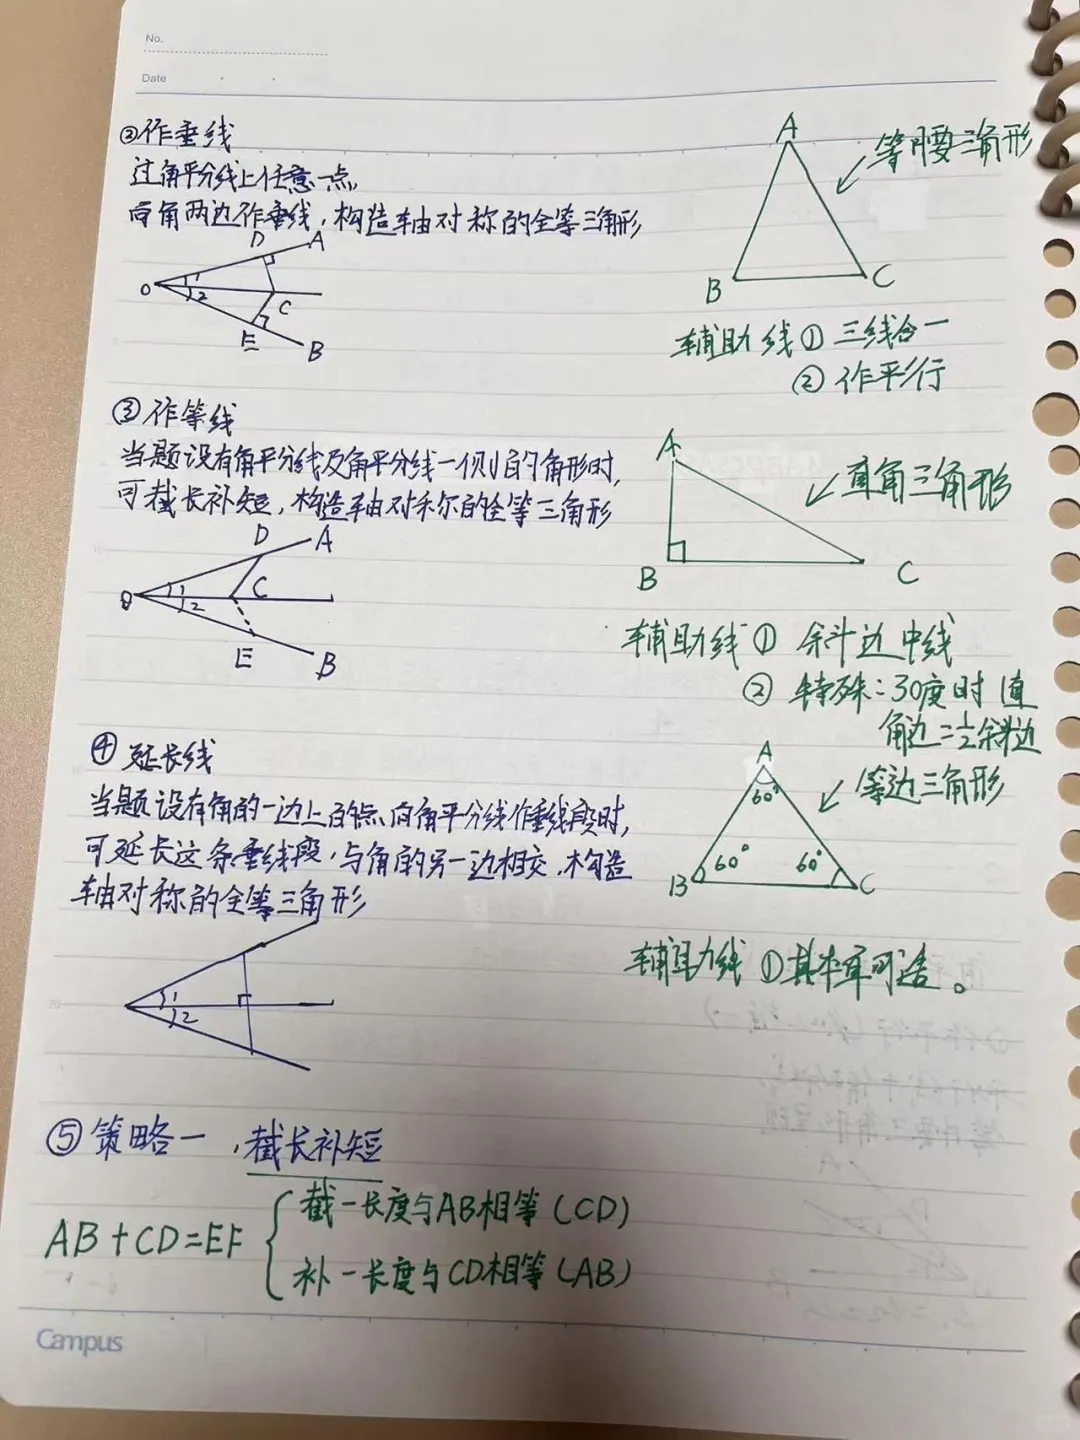 No.
Date
②作垂线
过角平分线上任意一点,
向角两边作垂线,构造轴对称的全等三角形
D A
O 1 2 C
E B
③作等线
当题设有角平分线及角平分线一侧的角形时,
可截长补短,构造轴对称的全等三角形
D A
1 2 C
E B
④延长线
当题设有角的一边上的点向角平分线作垂线段时,
可延长这条垂线段,与角的另一边相交,构造
轴对称的全等三角形
1
2
⑤策略一,截长补短
AB+CD=EF
截一长度与AB相等(CD)
补一长度与CD相等(AB)
Campus
A
等腰三角形
B C
辅助线①三线合一
②作平行
A
直角三角形
B C
辅助线① 斜边中线
② 特殊:30度时 直
角边=1/2斜边
A
等边三角形
60°
60° 60°
B C
辅助线 ①其本身可造。